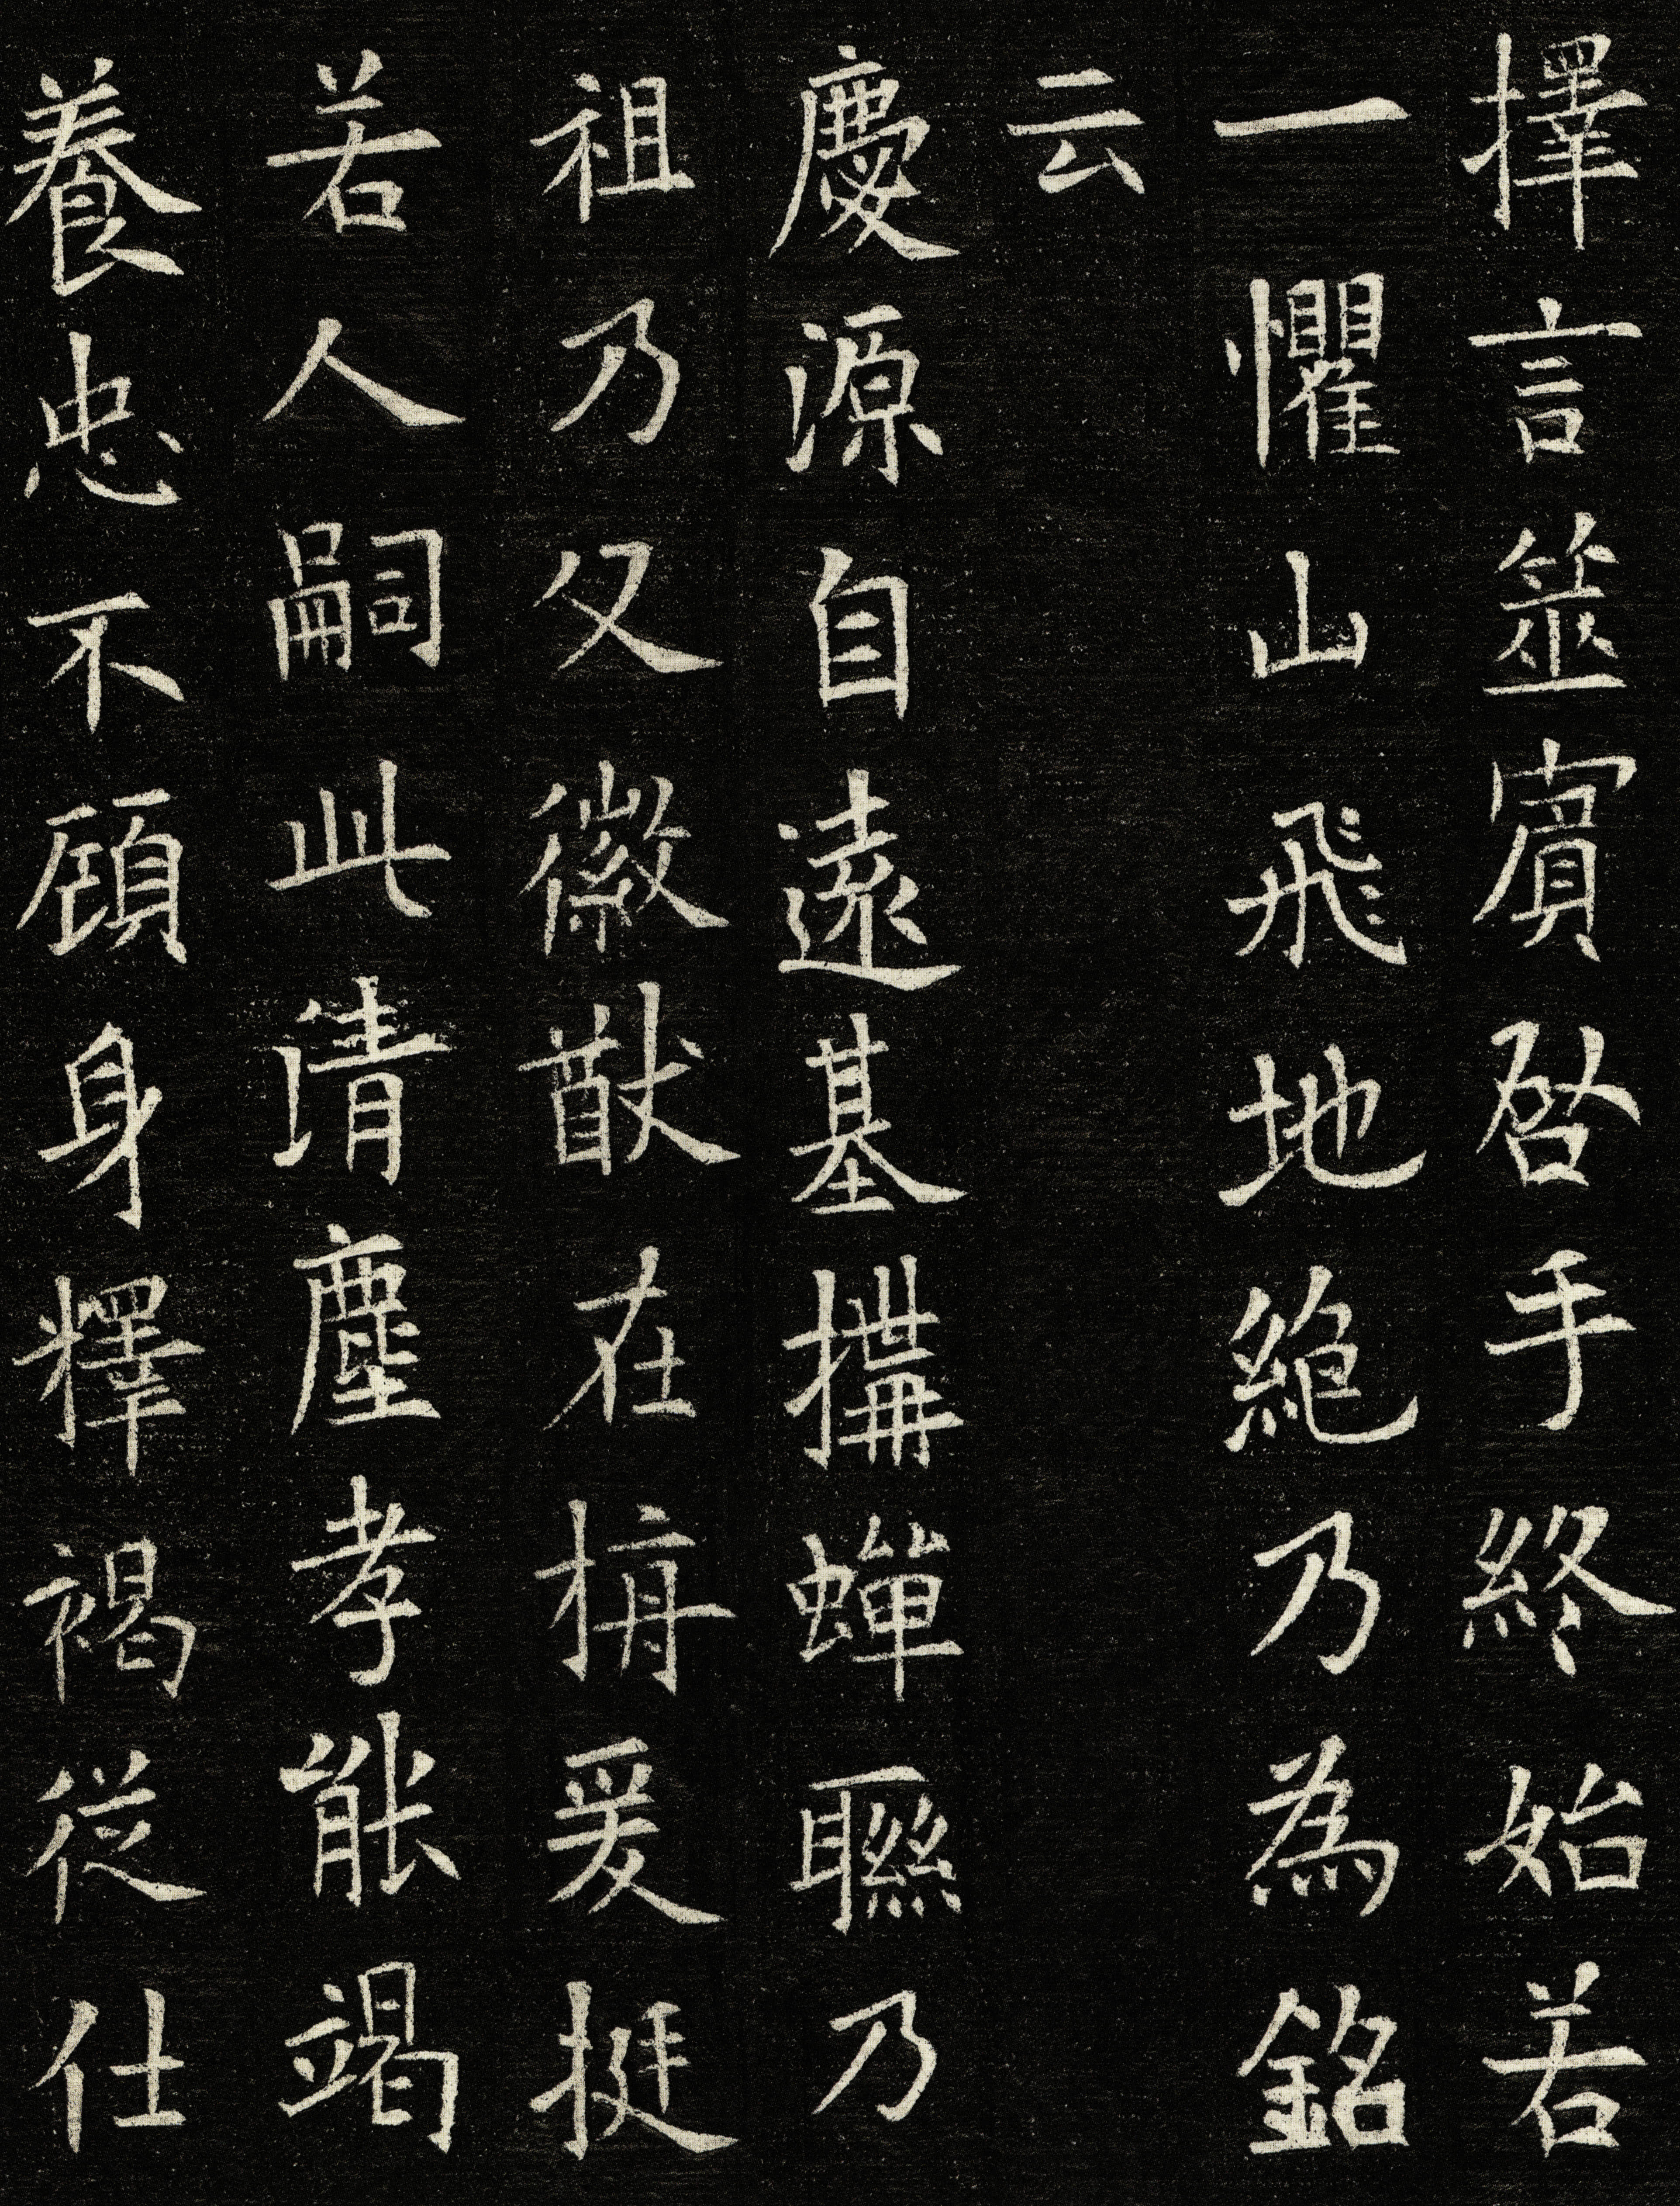 擇言筮賓啓手終始若
一懼山飛地絶乃為銘
云
慶源自遠基搆蟬聯乃
祖乃父徽猷在旃爰挺
若人嗣此清塵孝能竭
養忠不顧身釋褐從仕